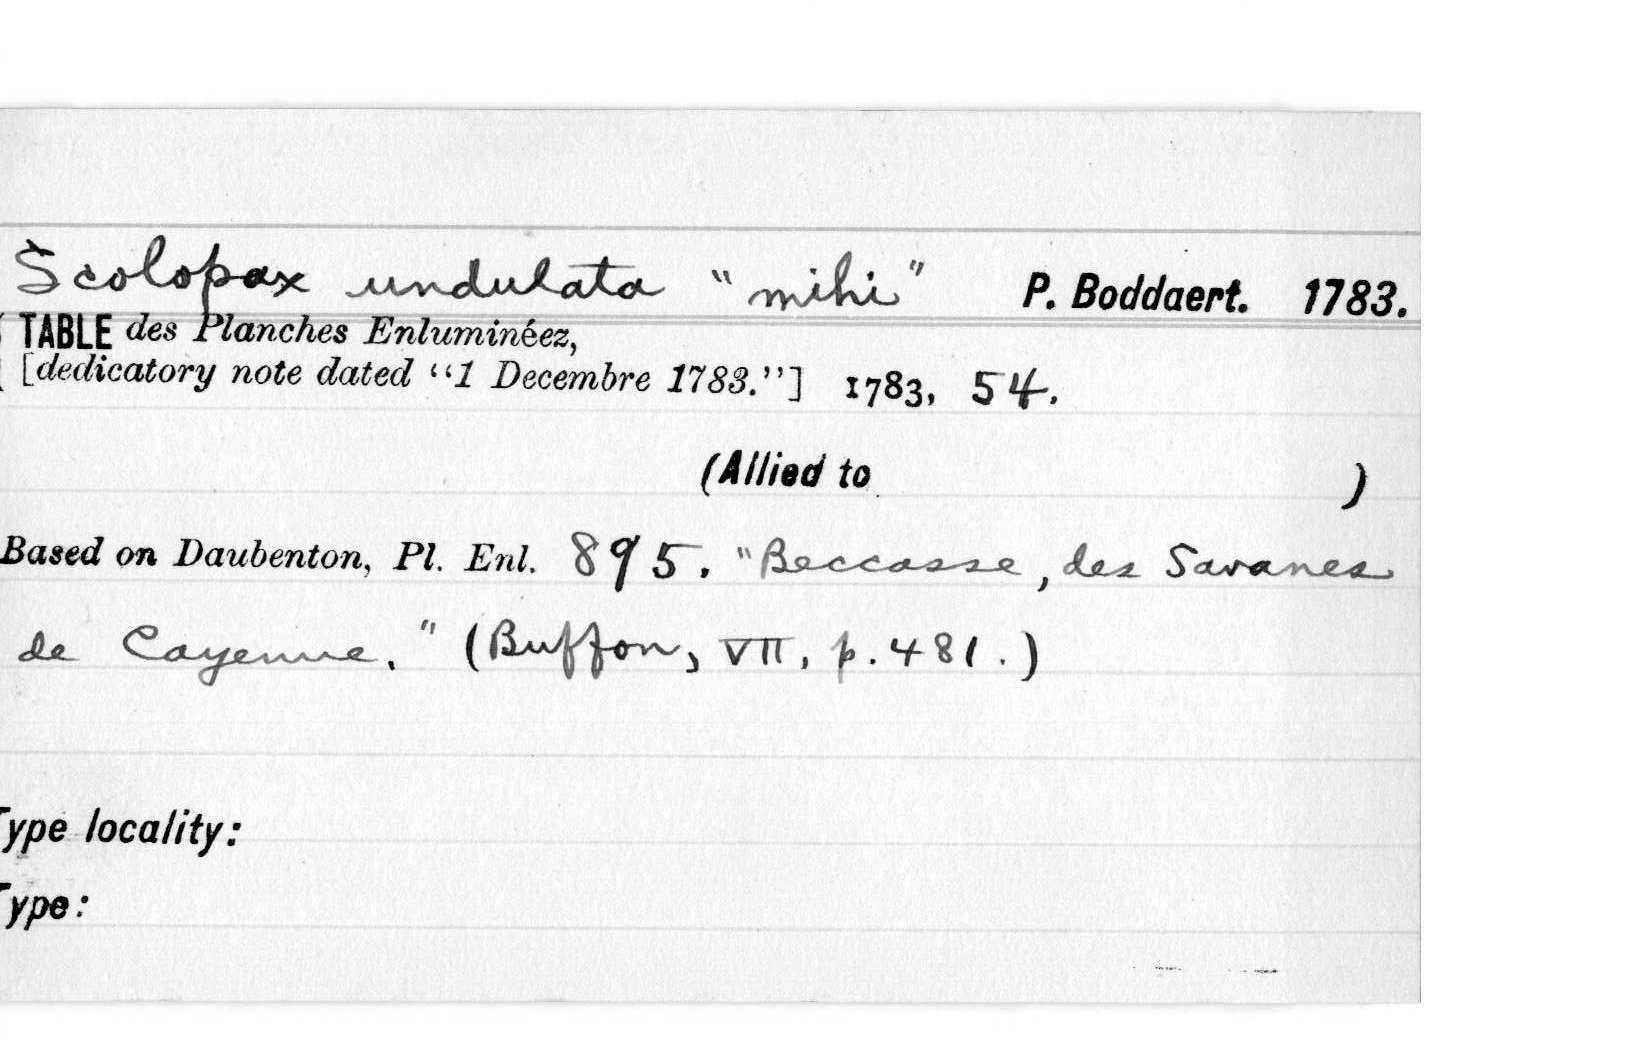 Scolopax undulata "mihi" P. Boddaert. 1783.
TABLE des Planches Enluminéez,
[dedicatory note dated "1 Decembre 1783."] 1783, 54.
(Allied to )
Based on Daubenton, Pl. Enl. 895. "Beccasse, des Savanes
de Cayenne." (Buffon, VII, p. 481.)
Type locality:
Type: